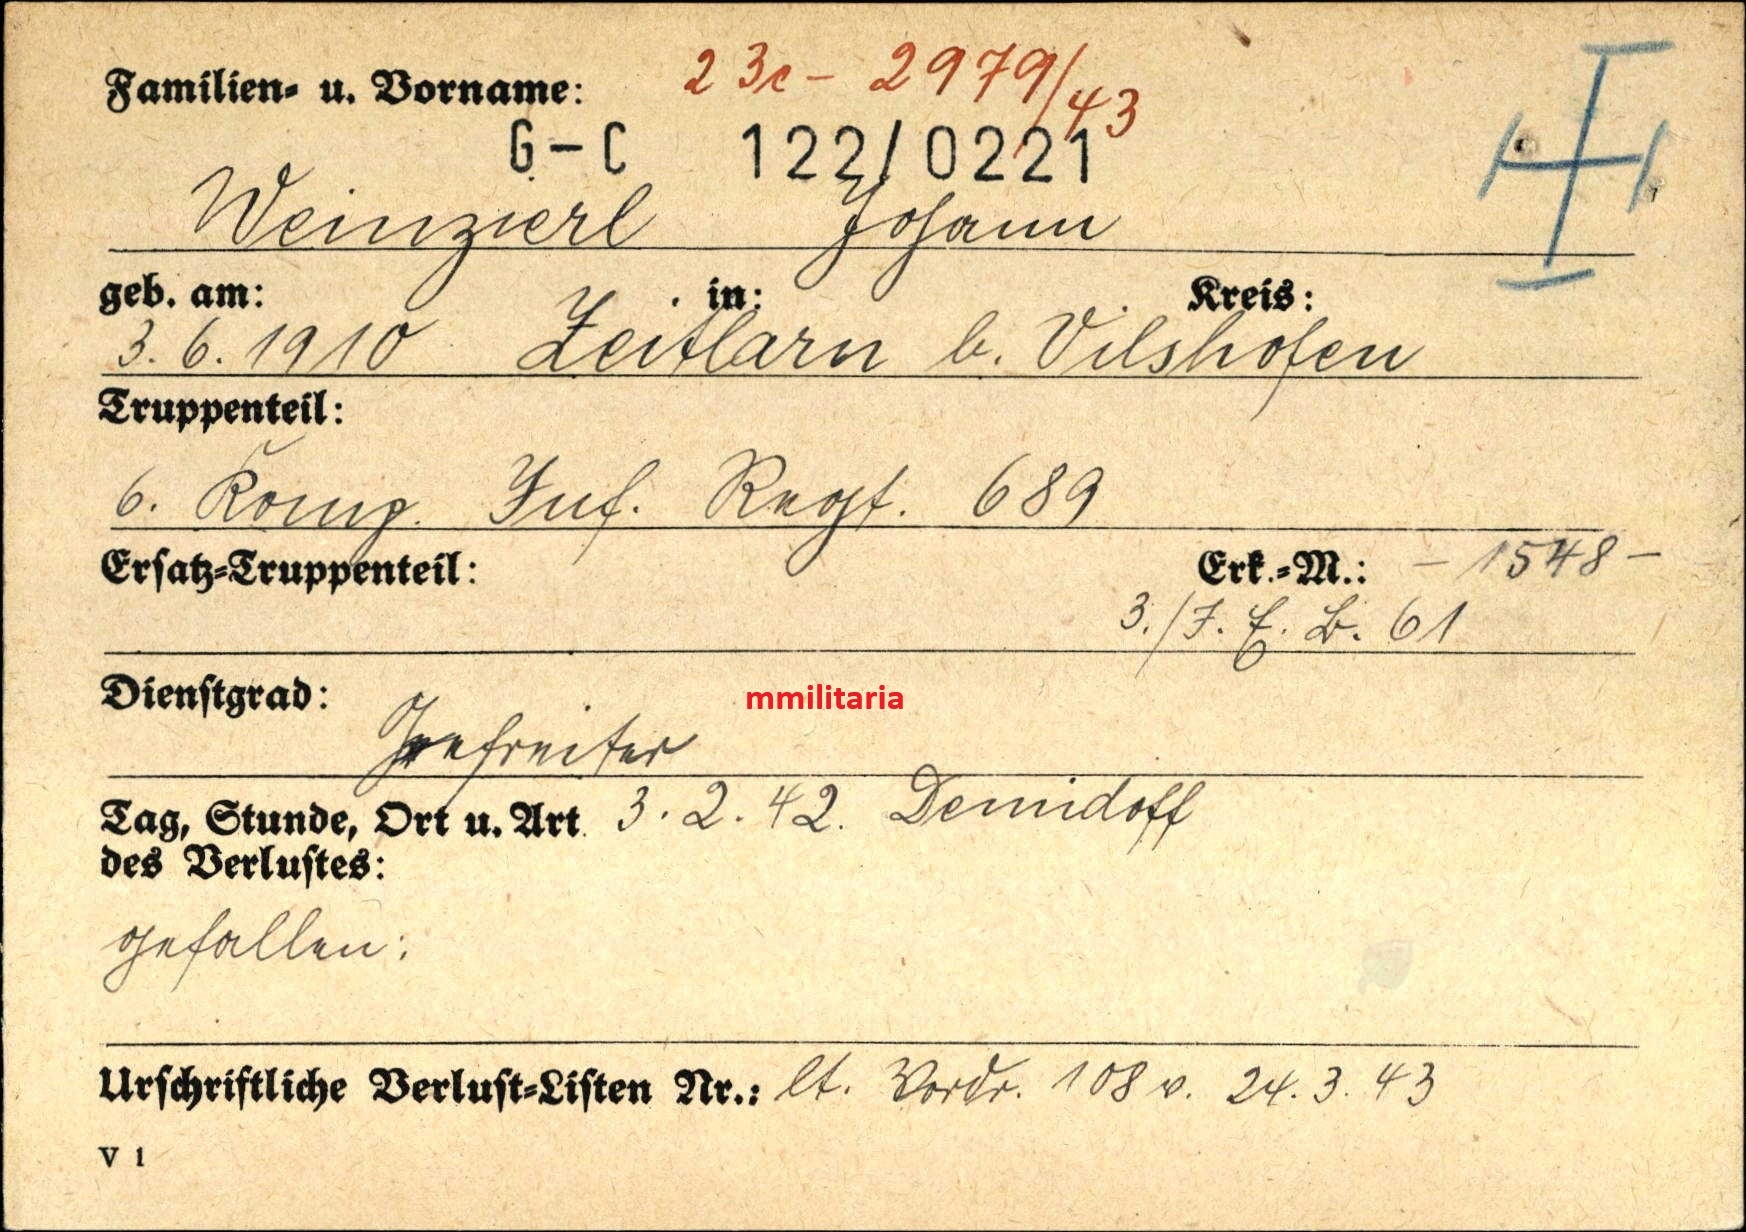 Familien- u. Vorname: 23c - 2979/43
G-C 122/0221
Weinzierl Johann
geb. am: in: Kreis:
3. 6. 1910 Zeitlarn b. Vilshofen
Truppenteil:
6. Komp. Inf. Regt. 689
Ersatz-Truppenteil: Erk.-M.: - 1548 -
3./I. E. B. 61
Dienstgrad:
mmilitaria
Gefreiter
Tag, Stunde, Ort u. Art 3. 2. 42. Demidoff
des Verlustes:
gefallen:
Urschriftliche Verlust-Listen Nr.: lt. Vordr. 108 v. 24. 3. 43
V 1